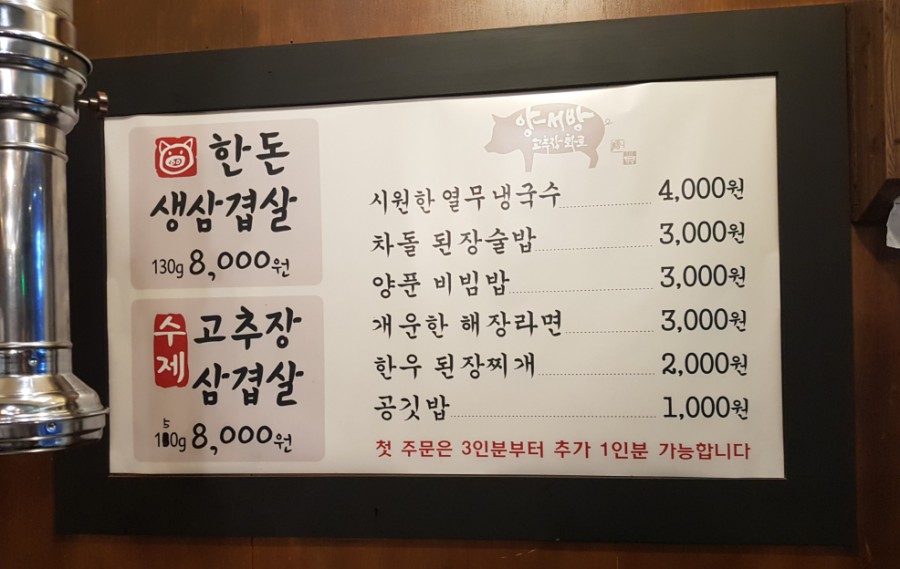 한돈
생삼겹살
130g 8,000원
수제
고추장
삼겹살
150g 8,000원
양서방
고추장화로
시원한 열무 냉국수 4,000원
차돌 된장술밥 3,000원
양푼 비빔밥 3,000원
개운한 해장라면 3,000원
한우 된장찌개 2,000원
공깃밥 1,000원
첫 주문은 3인분부터 추가 1인분 가능합니다